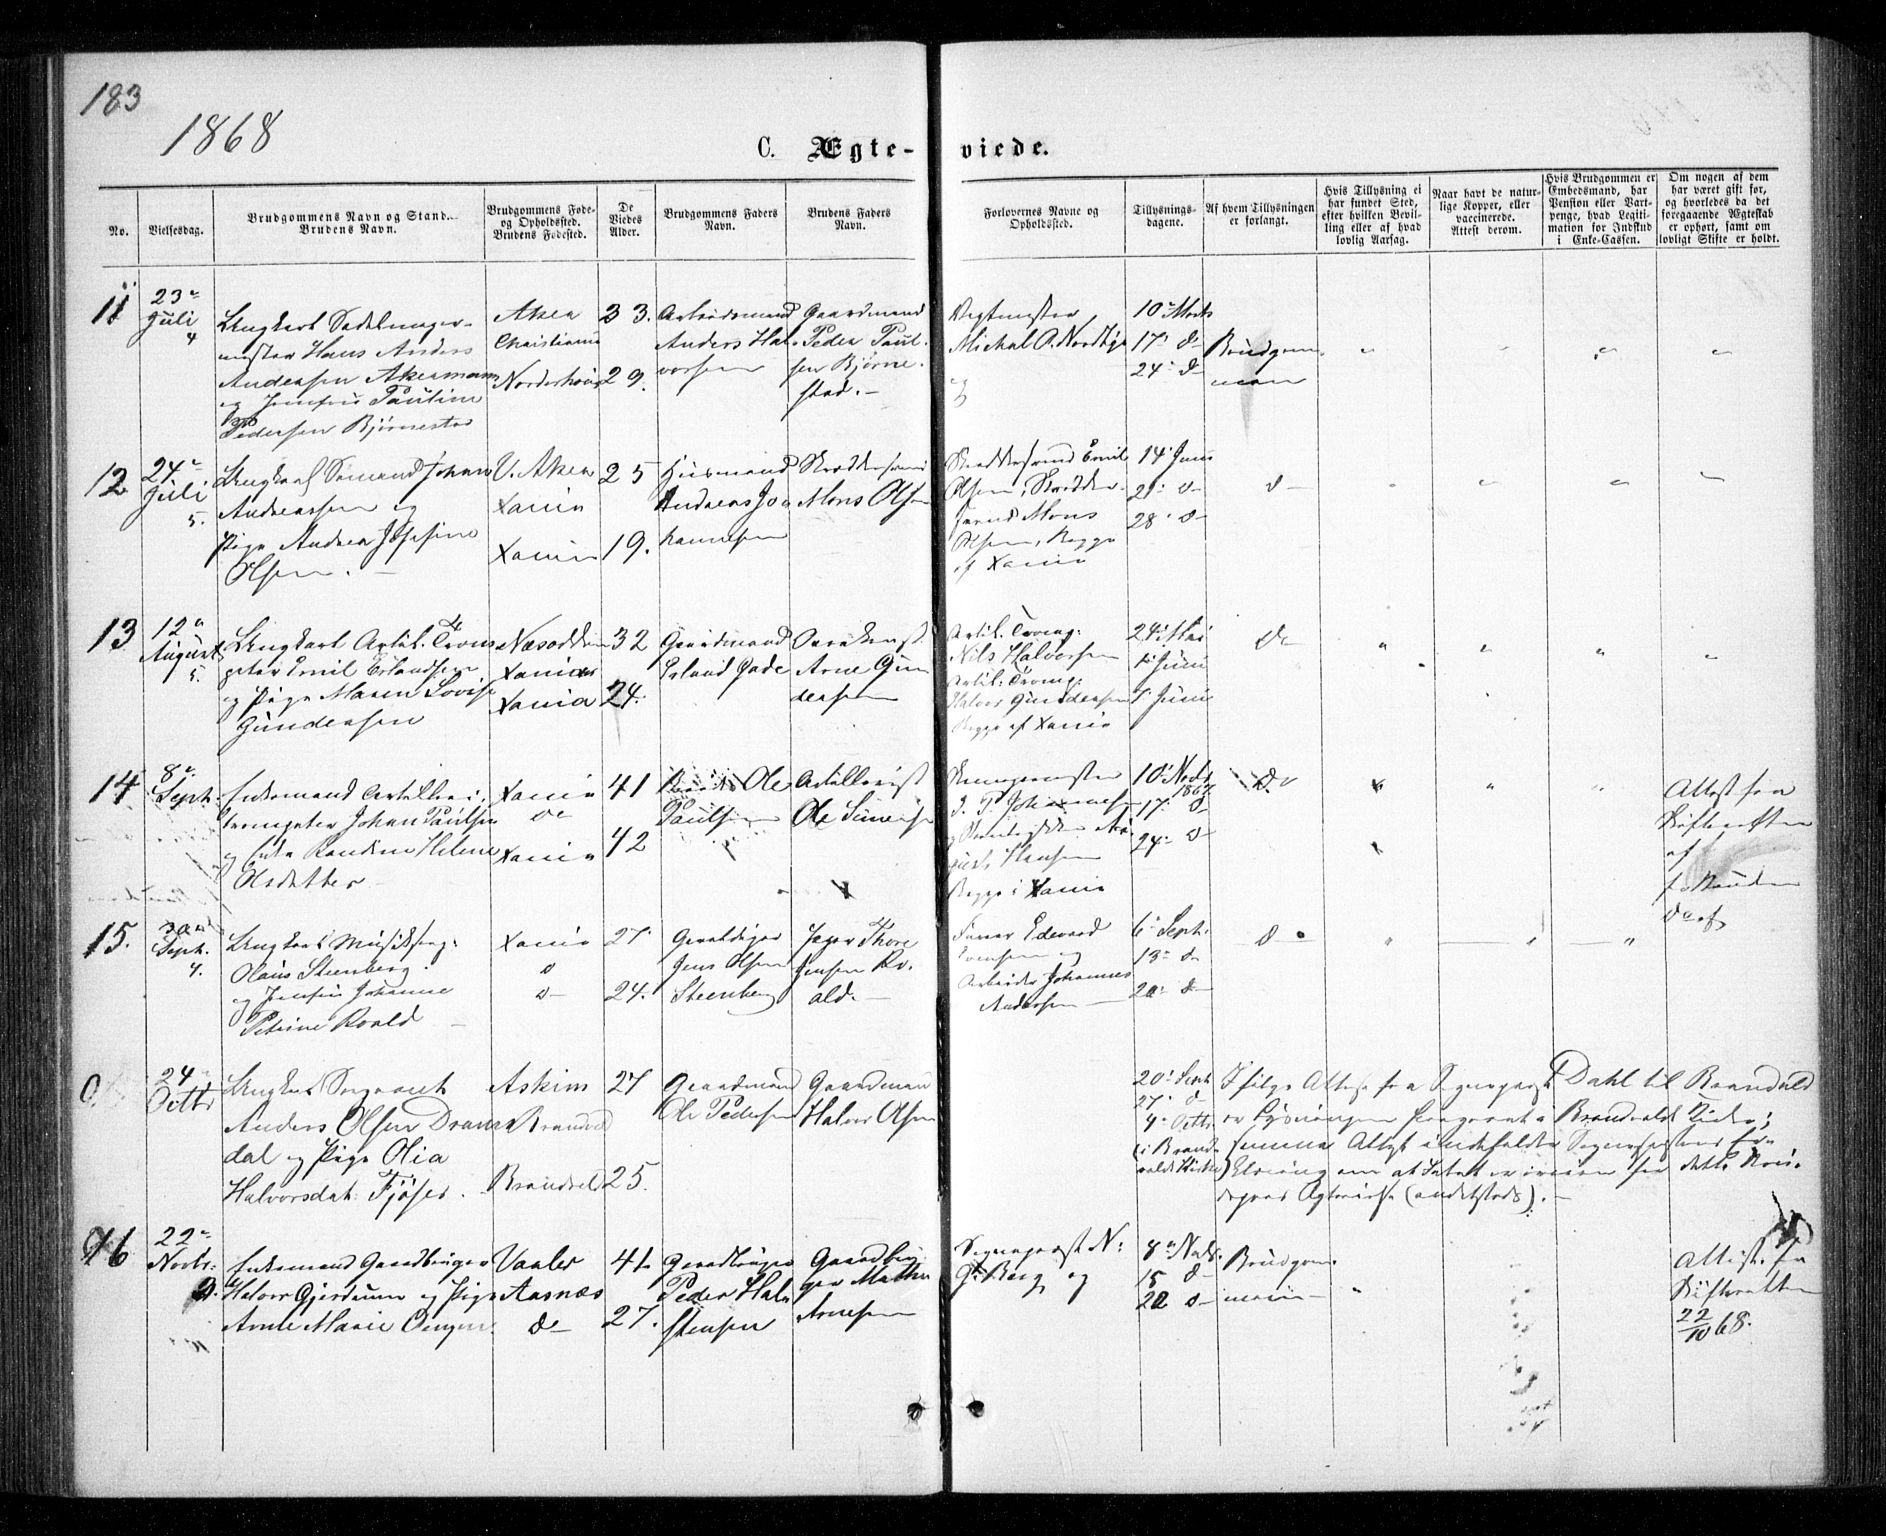 183
1868
C. Ægte-viede.
No.
Vielsesdag.
Brudgommens Navn og Stand.
Brudens Navn.
Brudgommens Føde-
og Opholdssted.
Brudens Fødested.
De
Viedes
Alder.
Brudgommens Faders
Navn.
Brudens Faders
Navn.
Forlovernes Navne og
Opholdssted.
Tillysnings-
dagene.
Af hvem Tillysningen
er forlangt.
Hvis Tillysning ei
har fundet Sted,
efter hvilken Bevil-
ling eller af hvad
lovlig Aarsag.
Naar havt de natur-
lige Kopper, eller
vaccinerede.
Attest derom.
Hvis Brudgommen er
Embedsmand, har
Pension eller Vart-
penge, hvad Legiti-
mation for Indskud
i Enke-Cassen.
Om nogen af dem
har været gift før,
og hvorledes da det
foregaaende Ægteskab
er ophørt, samt om
lovligt Skifte er holdt.
11
23
Juli
4
Ungkarl Sadelmager-
mester Hans Anders
Andersen Akermann
og Jomfru Pauline
Pedersen Bjørnestad
Aker
Christiania
Norderhov
33.
29.
Arbeidsmand
Anders Hal-
vorsen
Gaardmand
Peder Paul-
sen Bjørne-
stad.
Vagtmester
Michal P. Nordby
10 Marts
17 d
24 d
Brudgom-
men
12
24
Juli
5.
Ungkarl Sømand Johan
Andreassen og
Pige Andrea Josefine
Olsen.
V. Aker
Xania
Xania
25
19.
Husmand
Andreas Jo-
hannesen
Skræddersvend
Mons Olsen
Skræddersvend Emil
Olsen, Skrædder-
svend Mons
Olsen, Begge
af Xania
14 Juni
21 d
28 d
d
13
12
August
5.
Ungkarl Artil. Trom-
peter Emil Erlandsen
og Pige Maren Lovise
Gundersen
Næsodden
Xania
Xania
32
24.
Gaardmand
Erland
Arne Gun
dersen
Artil. Tromp.
Nils Halvorsen
Artil. Tromp.
Halvor Gundersen
Begge af Xania
24 Mai
1 Juni
7 Juni
d
14
8
Sept.
Enkemand Artilleri-
trompeter Johan Paulsen
og Enke Randine Helene
Olsdatter
Xania
d
Xania
41
42
Ole
Paulsen
Artillerist
Ole Simensen
Begge i Xania
10 Novbr
1867
17 d
24 d
d
Attest fra
Skifteretten
af
for Bruden
15.
30
Sept.
4.
Ungkarl
Olaus Steenberg
og Jomfru Johanne
Petrine Roald
Xania
d
d
27
24.
Jens Olsen
Steenberg
Jæger Thore
Jensen Ro-
ald.
Edevard
og
Arbeider Johannes
Andersen
6 Sept.
13 d
20 d
d
0.
24
Octbr
Ungkarl Sergeant
Anders Olsen Dram-
dal og Pige Olia
Halvorsdat. Fjøser.
Askim
Brandval
Brandval
27
25.
Gaardmand
Ole Pedersen
Gaardmand
Halvor Olsen
20 Sept
27 d
4 Octbr
(i Brand-
volds Kirke)
Ifølge Attest fra Sogneprest Dahl til Brandvold
er Lysningen foregaaet i Brandvolds Kirke;
samme Attest indeholder Sogneprestens Er-
klæring om at Intet er iveien for dette Brud-
depars Ægtevielse (andetsteds).
16
22
Novbr.
Enkemand Gaardbruger
Halvor Gjerdrum og Pige
Arnte Marie
Vaaler
Aasnæs
d
41
27.
Gaardbruger
Peder Hal-
stensen
Gaardbru-
ger Mathis
Arnesen
Sogneprest N:
G. Berg og
8 Novb.
15 d
22 d
Brudgom-
men
Attest fra
Skifteretten
22/10 68.